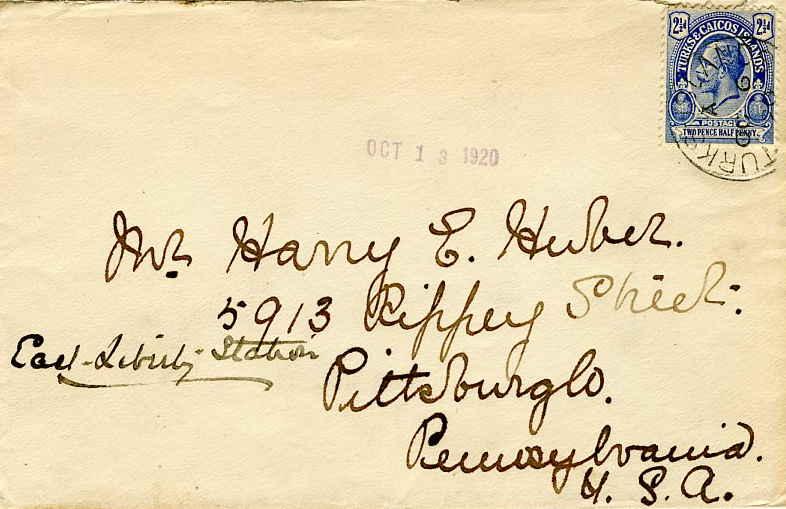 2½d 2½d
TURKS & CAICOS ISLANDS
POSTAGE
TWO PENCE HALF PENNY
TURKS
OCT 13 1920
Mr. Harry E. Huber.
5913 Rippey Street.
East-Liberty Station
Pittsburgh.
Pennsylvania.
U. S. A.